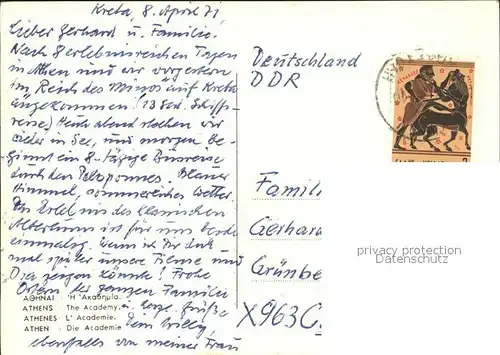 Kreta, 8. April 71
Lieber Gerhard u. Familie!
Nach 8 erlebnisreichen Tagen
in Athen sind wir vorgestern
im Reich des Minos auf Kreta
angekommen (13 Std. Schiffs-
reise). Heute abend stechen wir
wieder in See, und morgen be-
ginnt ein 8-tägige Busreise
durch den Peloponnes. Blauer
Himmel, sommerliches Wetter.
Ein Erlebnis des klassischen
Altertums ist für uns beide
einmalig. Wenn ich Dir doch
mal später unsere Filme und
Dias zeigen könnte! Frohe
Ostern der ganzen Familie
u. herzl. Grüße
Dein Willy,
ebenfalls von meiner Frau
ΑΘΗΝΑΙ Ἡ Ἀκαδημία.
ATHENS The Academy.
ATHENES L' Academie.
ATHEN Die Academie
Deutschland
DDR
Famili
Gerhard
Grünbe
X963C
privacy protection
Datenschutz